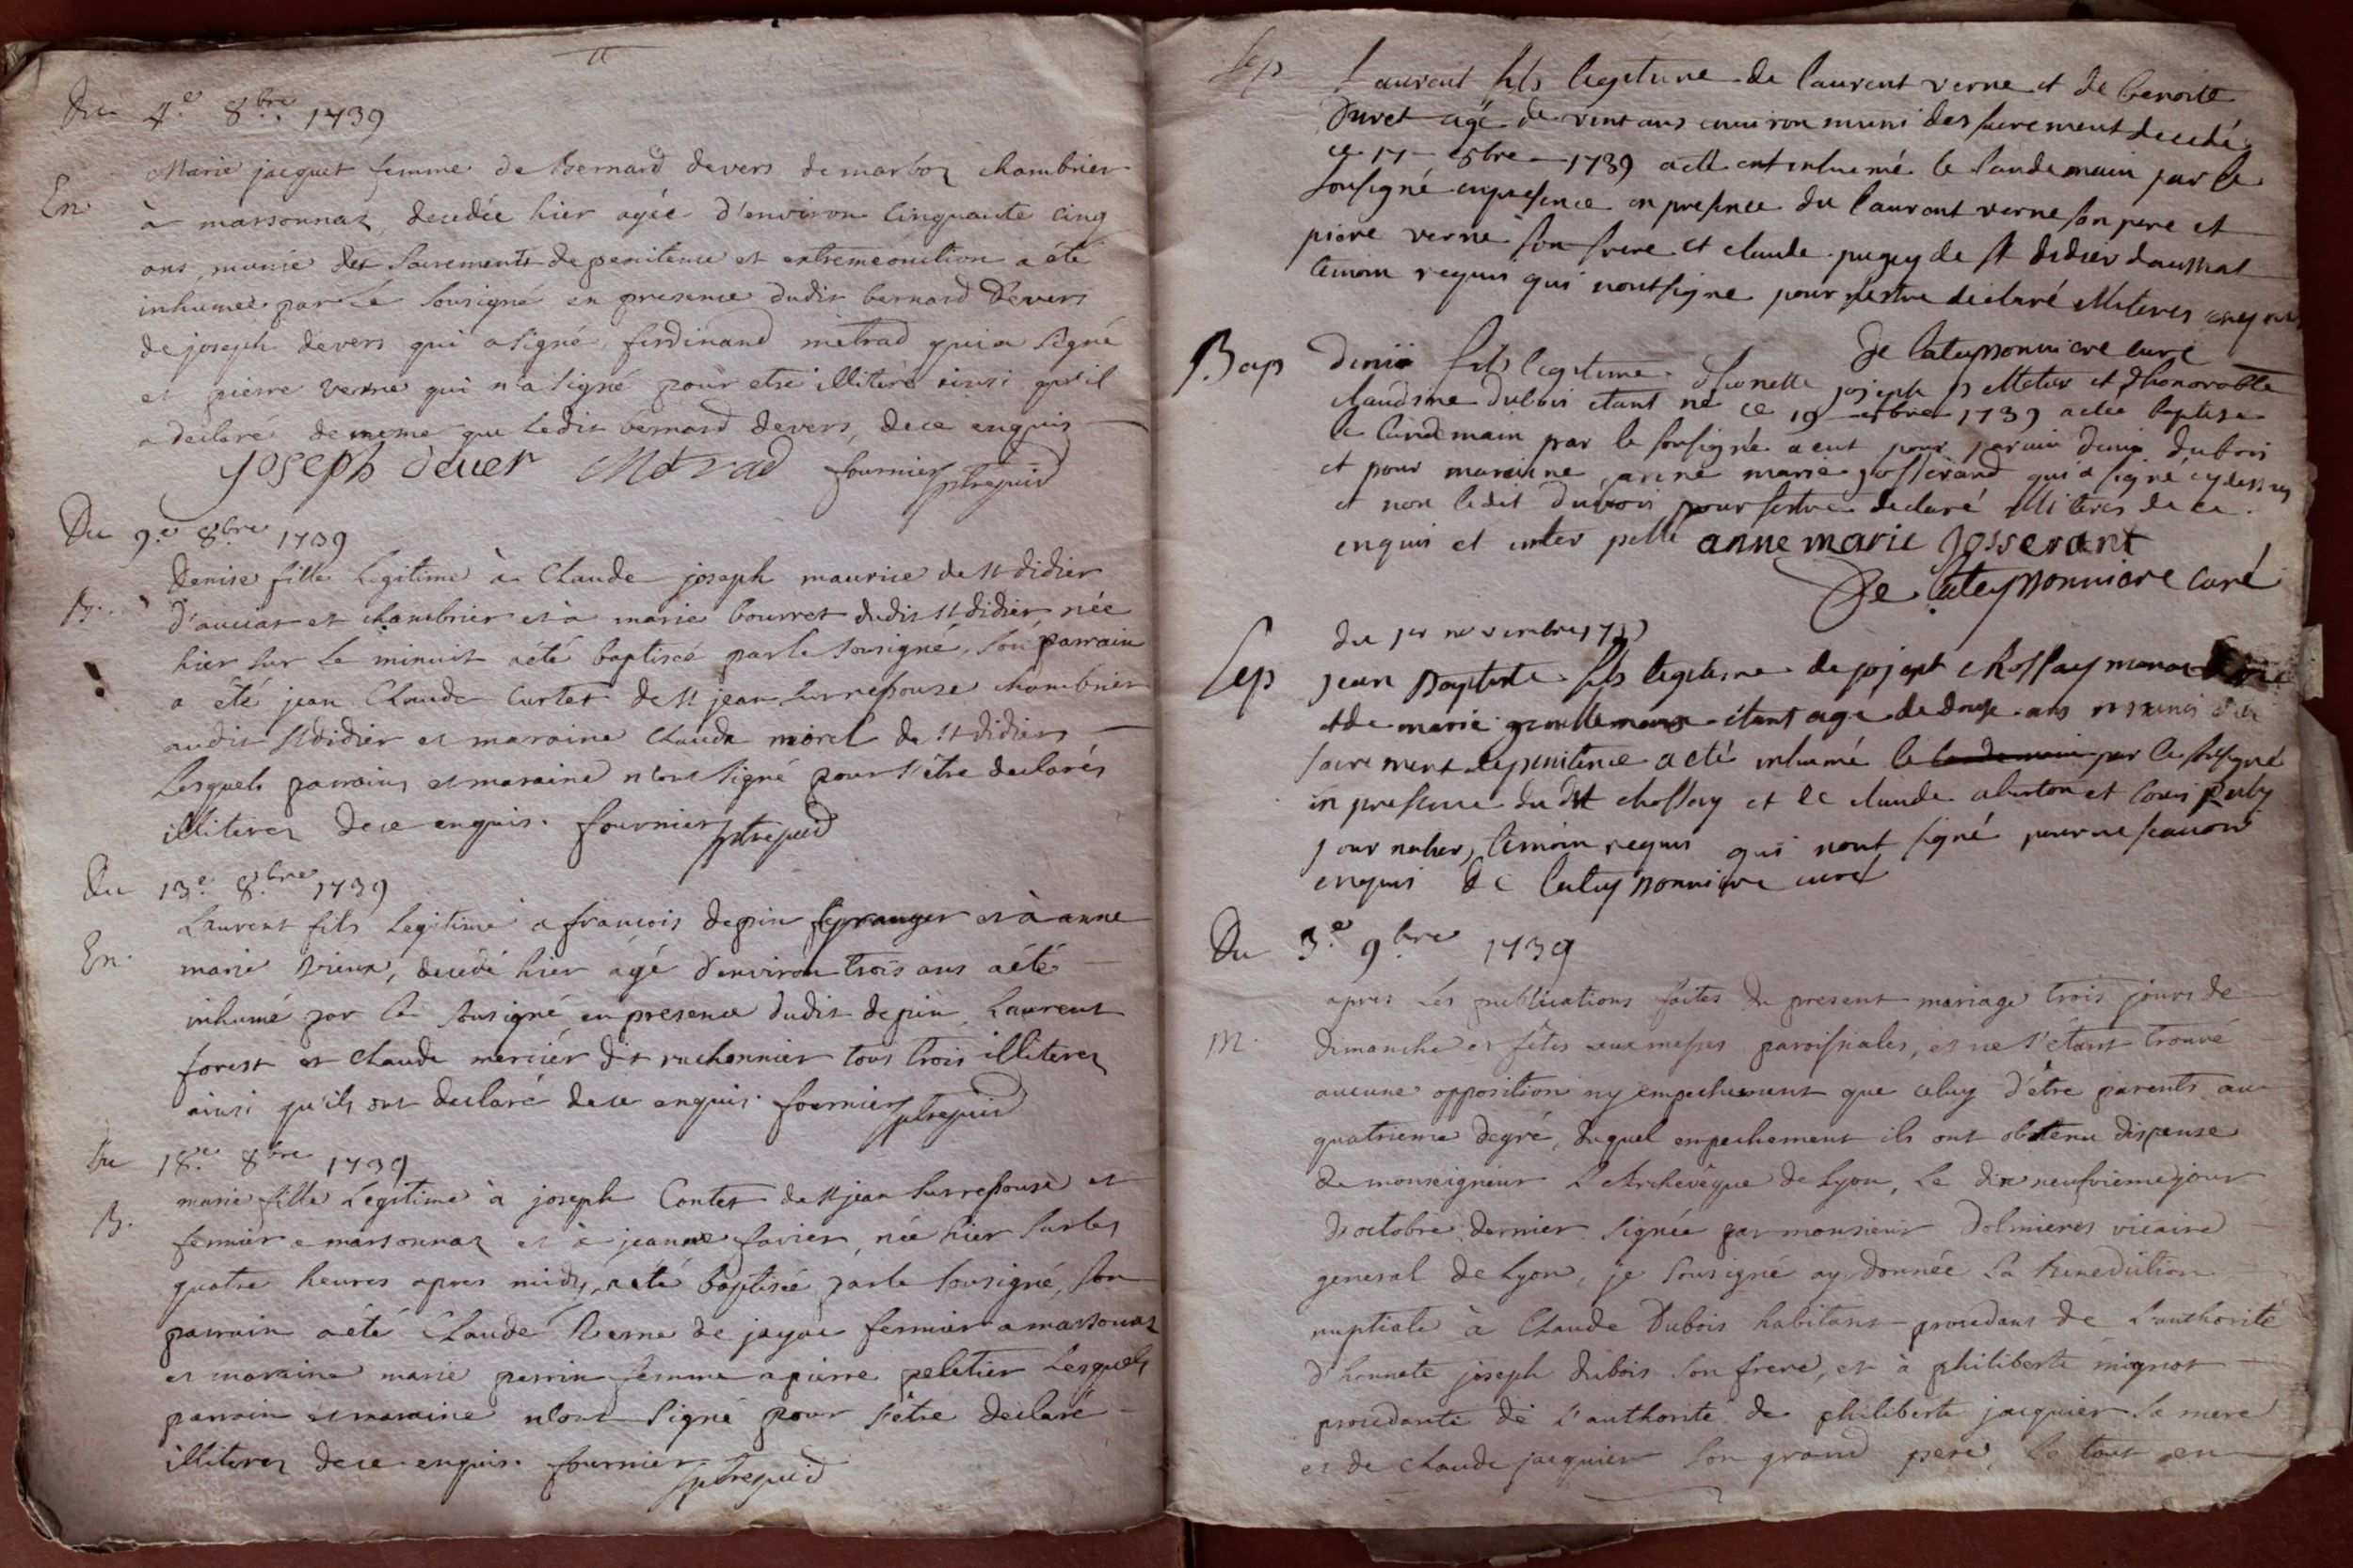 Du 4e 8bre 1739
En. Marie jacquet femme de Bernard devers de marboz chambrier
à massonnaz, decedée hier agée d'environ cinquante cinq
ans, munie des sacrements de penitence et extremeonction a été
inhumée par le sousigné en presence dudit bernard devers
de joseph devers qui a signé, ferdinand metrad qui a signé
et pierre verne qui n'a signé pour etre illiteré ainsi qu'il
a declaré de meme que ledit bernard devers, de ce enquis
joseph dever Metrad fournier ptre
Du 9.e 8bre 1739
B. Denise fille legitime à Claude joseph maurice de st didier
d'aussiat et chambrier et à marie bourret dudit st didier, née
hier sur le minuit a été baptiseé par le sousigné, son parrain
a été jean Claude Curtet de st jean sur ressouze chambrier
audit st didier et maraine Claude morel de st didier
Lesquels parrains et maraine n'ont signé pour s'être declarés
illiterez de ce enquis. fournier ptre
Du 13e. 8.bre 1739
En. Laurent fils legitime a francois depin granger et à anne
marie vieux, decedé hier agé d'environ trois ans a été
inhumé par le sousigné en presence dudit depin, Laurent
forest et Claude mercier dit ruchonnier tous trois illiterez
ainsi qu'ils ont declaré de ce enquis. fournier ptre
Du 18.e 8bre 1739
B. marie fille legitime à joseph Contet de st jean sur ressouze et
fermier a massonnaz et à jeanne favier, née hier sur les
quatre heures apres midy, a été baptisée par le sousigné, son
parrain a été Claude Verne de jayac fermier a massonaz
et maraine marie perrin femme a pierre peletier Lesquels
parrain et maraine n'ont signé pour s'être declaré
illiterez de ce enquis. fournier ptre
Sep Laurent fils legitime de laurent verne et de benoite
Duret agé de vint ans environ muni des sacrement decedé
ce 17 8bre 1739 a esté inhumé le landemain par le
sousigné en presence en presence du laurent verne son pere et
piere verne son frere et claude pugey de st didier daussiat
temoin requis qui nont signe pour sestre declaré illiteres
de lateyssonniere curé
Bap denis fils legitime joseph et dhonorable
claudine dubois etant né ce 19 8bre 1739 a esté baptise
le landemain par le sousigné a eut pour parain denis dubois
et pour maraine anne marie josserand qui a signé cy dessus
et non ledit dubois pour sestre declaré illiteres de ce
enquis et inter pellé anne marie Josserant
De lateyssonniere curé
du 1er novembre 1739
Sep jean baptiste fils legitime de josept chossay
et de marie guillemeau etant age de douze ans muni du
sacrement de penitence a eté inhumé le landemain par le sousigné
in presence du dit chossay et de claude et louis
journalier, temoin requis qui nont signé pour ne scavoir
enquis de lateyssonniere curé
Du 3.e 9bre 1739
apres les publications faites du present mariage trois jours de
M. dimanche et fêtes aux messes paroissiales, et ne s'étant trouvé
aucune opposition ny empechement que celuy d'être parents au
quatrieme degré, duquel empechement ils ont obtenu dispense
de monseigneur L'Archevêque de Lyon, le dix neufvieme jour
d'octobre dernier signée par monsieur Dolmieres vicaire
general de Lyon, je sousigné ay donnée la benediction
nuptiale à Claude Dubois habitant procedant de l'authorité
d'honnete joseph dubois son frere, et à philiberte mignot
procedante de l'authorité de philiberte jacquier sa mere
et de Claude jacquier son grand pere, le tout en